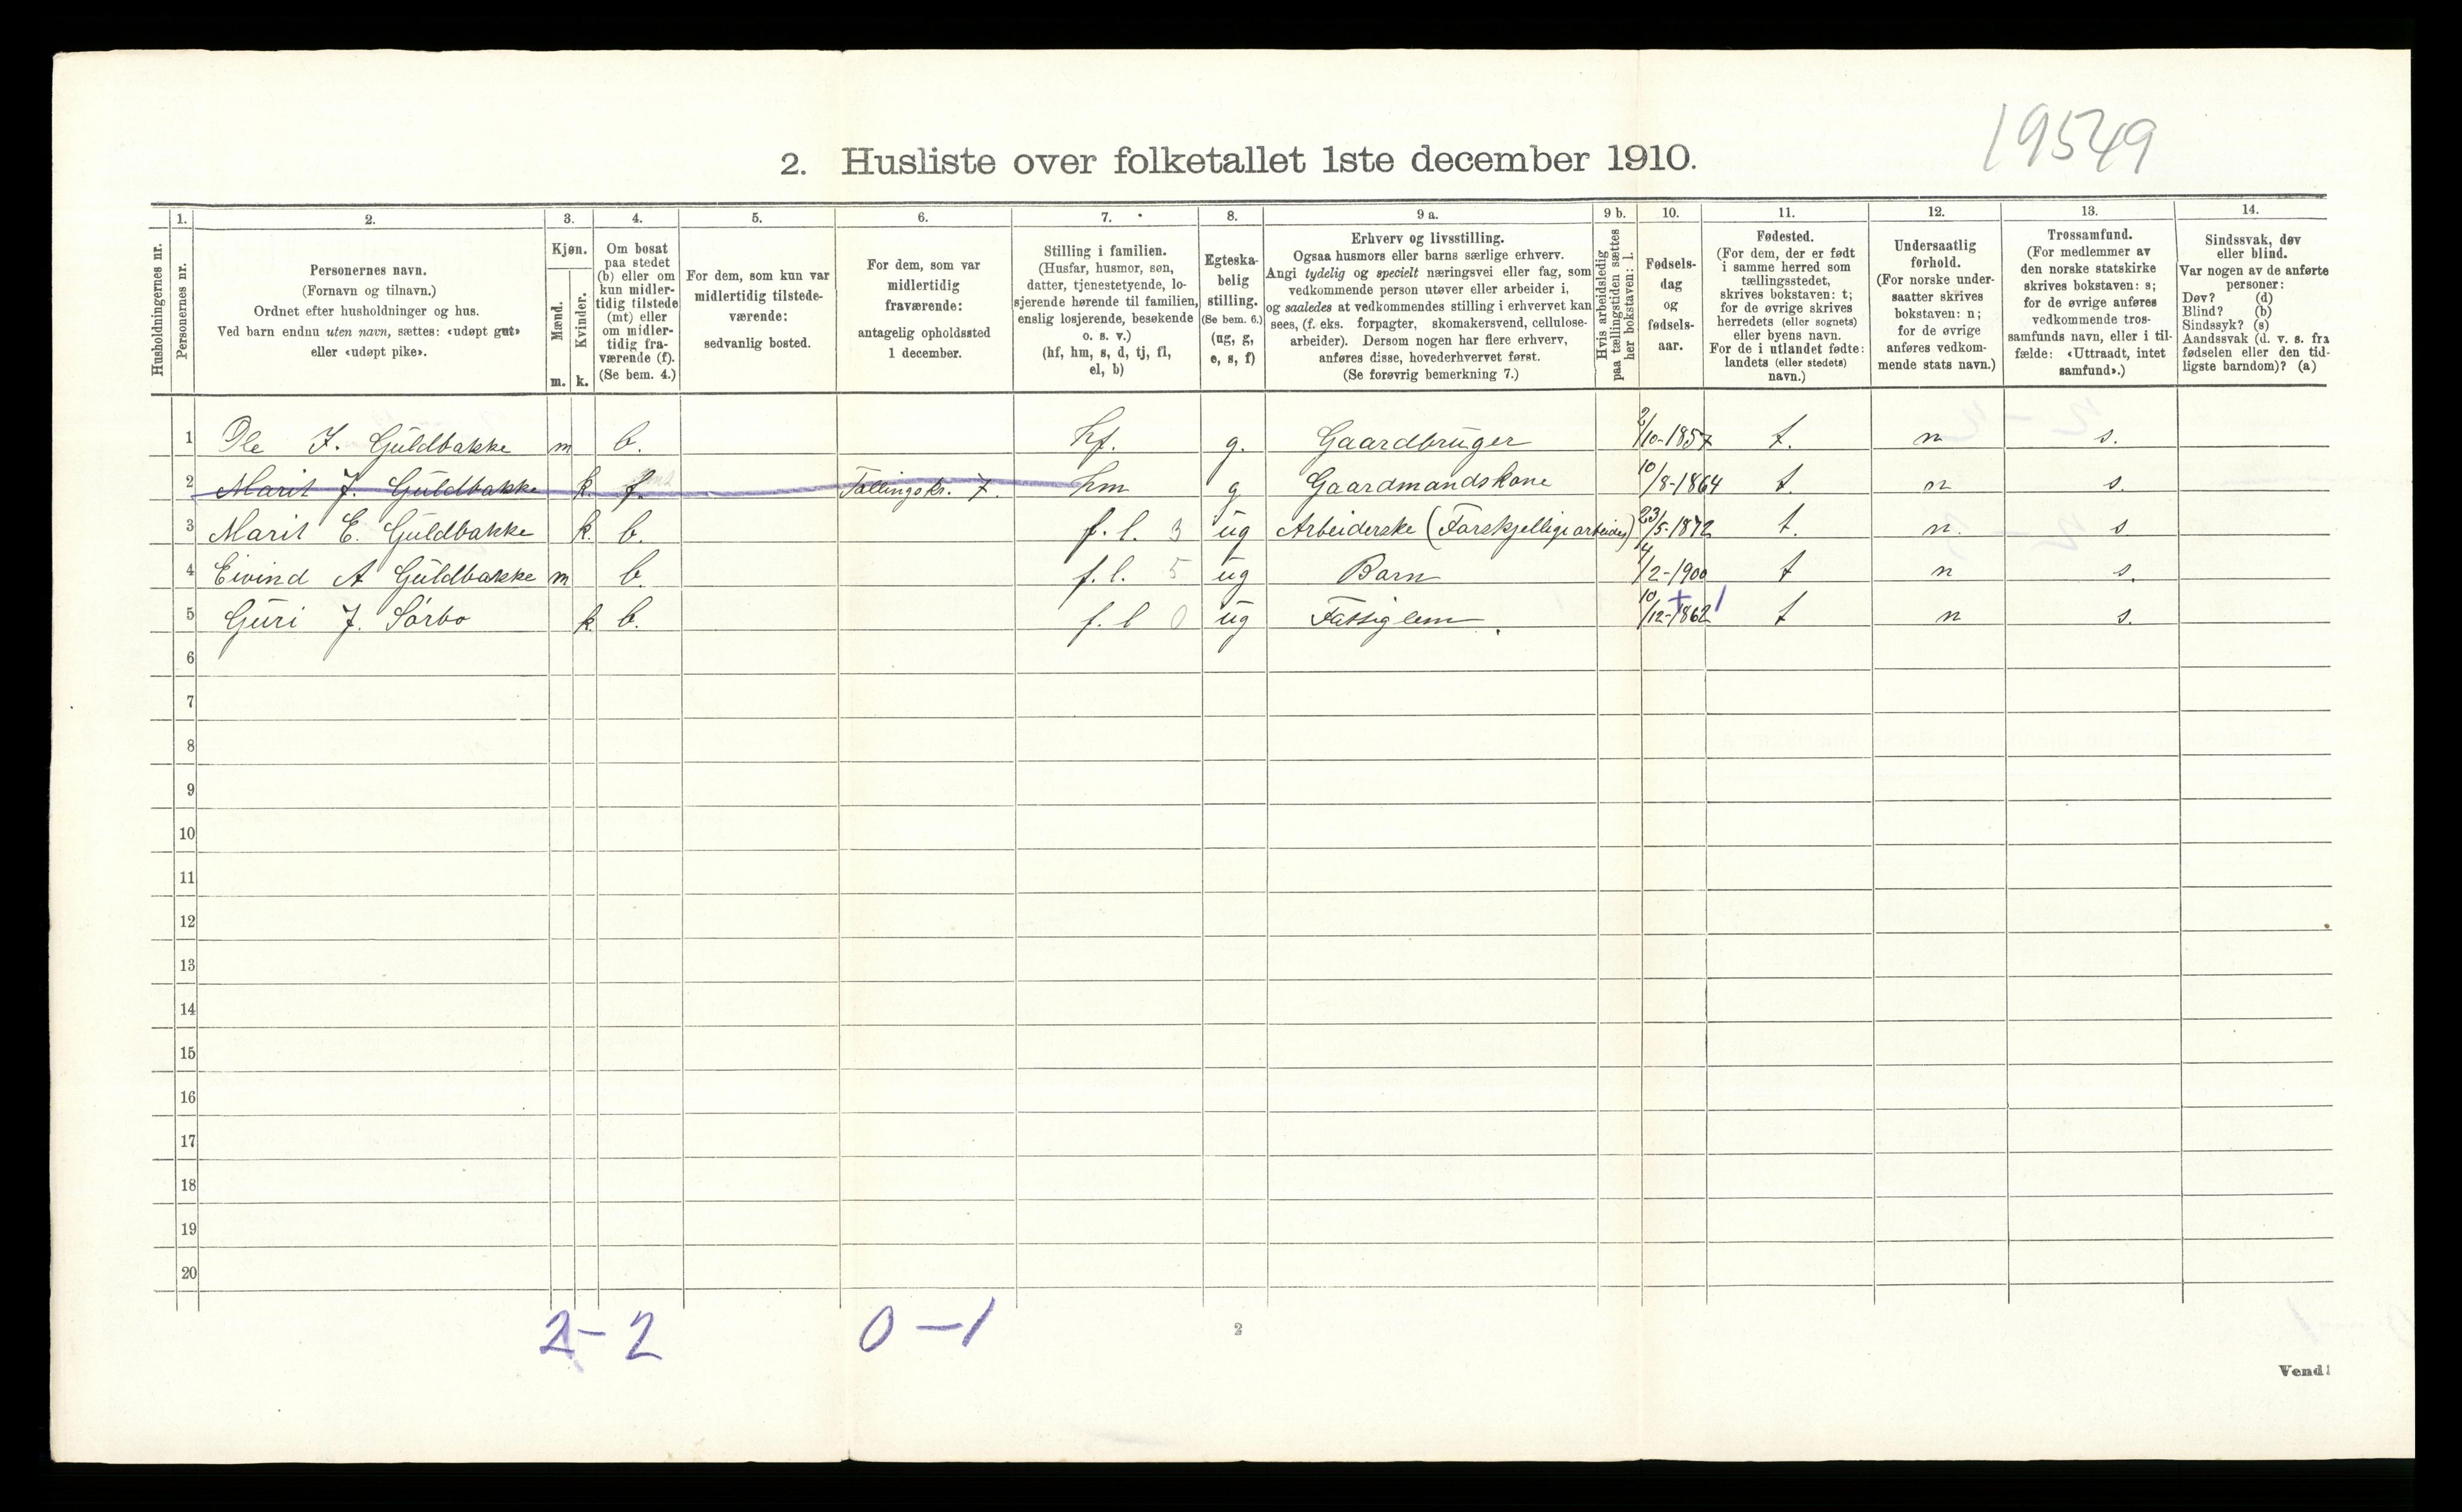 19549
2. Husliste over folketallet 1ste december 1910.
Husholdningernes nr.
1. Personernes nr.
2. Personernes navn.
(Fornavn og tilnavn.)
Ordnet efter husholdninger og hus.
Ved barn endnu uten navn, sættes: «udøpt gut»
eller «udøpt pike».
3. Kjøn.
Mænd. m.
Kvinder. k.
4. Om bosat
paa stedet
(b) eller om
kun midler-
tidig tilstede
(mt) eller
om midler-
tidig fra-
værende (f).
(Se bem. 4.)
5. For dem, som kun var
midlertidig tilstede-
værende:
sedvanlig bosted.
6. For dem, som var
midlertidig
fraværende:
antagelig opholdssted
1 december.
7. Stilling i familien.
(Husfar, husmor, søn,
datter, tjenestetyende, lo-
sjerende hørende til familien,
enslig losjerende, besøkende
o. s. v.)
(hf, hm, s, d, tj, fl,
el, b)
8. Egteska-
belig
stilling.
(Se bem. 6.)
(ug, g,
e, s, f)
9 a. Erhverv og livsstilling.
Ogsaa husmors eller barns særlige erhverv.
Angi tydelig og specielt næringsvei eller fag, som
vedkommende person utøver eller arbeider i,
og saaledes at vedkommendes stilling i erhvervet kan
sees, (f. eks. forpagter, skomakersvend, cellulose-
arbeider). Dersom nogen har flere erhverv,
anføres disse, hovederhvervet først.
(Se forøvrig bemerkning 7.)
9 b. Hvis arbeidsledig
paa tællingstiden sættes
her bokstaven: l.
10. Fødsels-
dag
og
fødsels-
aar.
11. Fødested.
(For dem, der er født
i samme herred som
tællingsstedet,
skrives bokstaven: t;
for de øvrige skrives
herredets (eller sognets)
eller byens navn.
For de i utlandet fødte:
landets (eller stedets)
navn.)
12. Undersaatlig
forhold.
(For norske under-
saatter skrives
bokstaven: n;
for de øvrige
anføres vedkom-
mende stats navn.)
13. Trossamfund.
(For medlemmer av
den norske statskirke
skrives bokstaven: s;
for de øvrige anføres
vedkommende tros-
samfunds navn, eller i til-
fælde: «Uttraadt, intet
samfund».)
14. Sindssvak, døv
eller blind.
Var nogen av de anførte
personer:
Døv? (d)
Blind? (b)
Sindssyk? (s)
Aandssvak (d. v. s. fra
fødselen eller den tid-
ligste barndom)? (a)
1 Ole J. Guldbakke m b. hf. g. Gaardbruger 2/10-1857 t. n s.
2 Marit J. Guldbakke k. f. Tællingskr. 7. hm g Gaardmandskone 10/8-1864 t. n s.
3 Marit E. Guldbakke k. b. f. l. 3 ug Arbeiderske (Forskjellige arbeider) 23/5-1872 t. n. s
4 Eivind A Guldbakke m b. f. l. 5 ug Barn 4/2-1900 t n s.
5 Guri J. Sørbo k. b. f. l 0 ug Fattiglem 10/12-1862 t n s.
6
7
8
9
10
11
12
13
14
15
16
17
18
19
20
2 - 2 0 - 1
2
Vend!